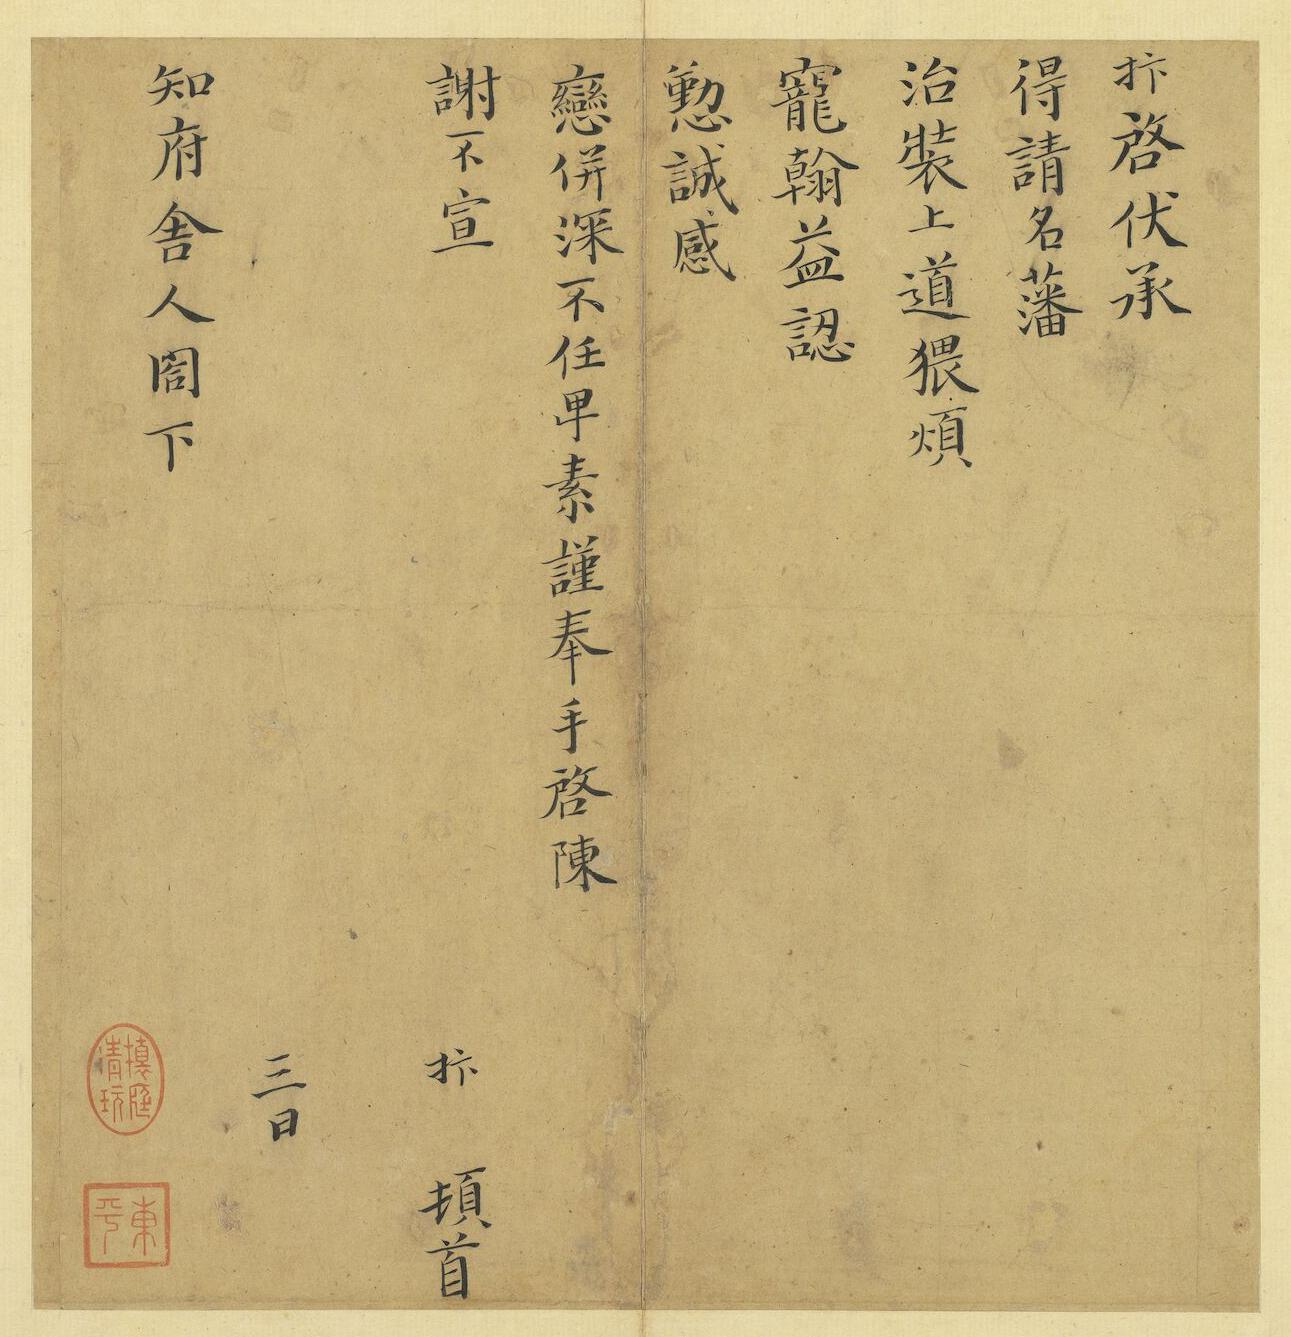 抃啓伏承
得請名藩
治裝上道猥煩
寵翰益認
懃誠感
戀併深不任卑素謹奉手啓陳
謝不宣
抃 頓首
三日
知府舍人閤下
東平
清玩